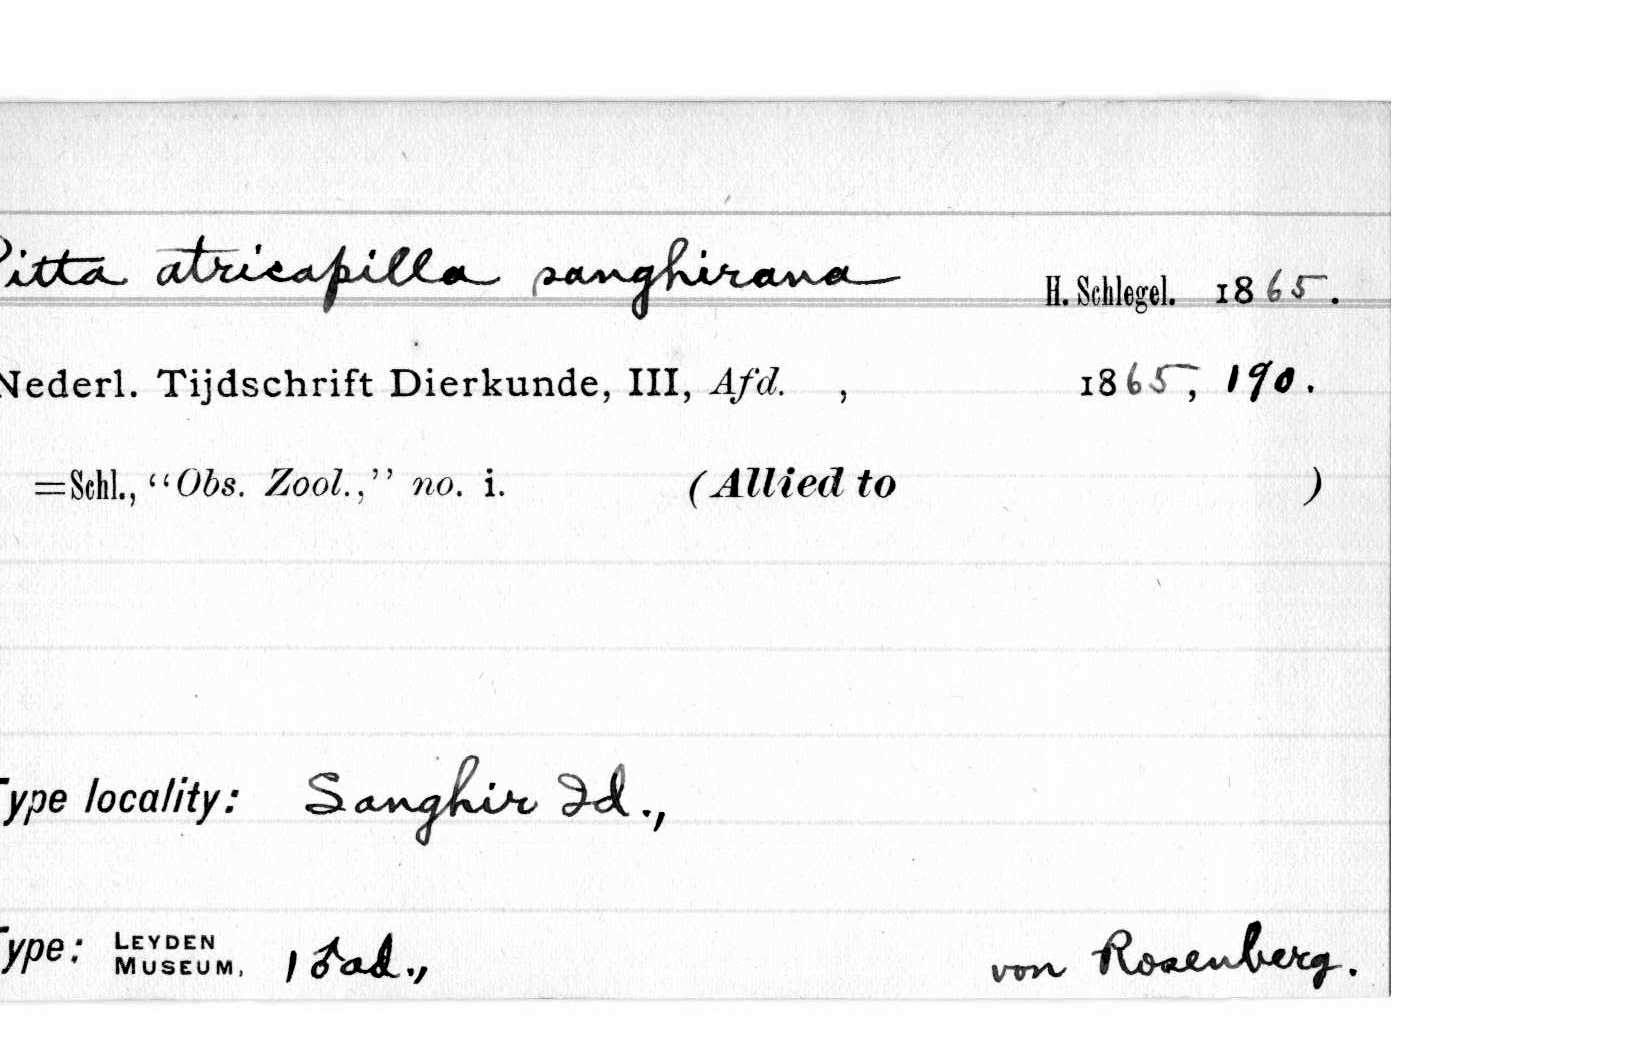 Pitta atricapilla sanghirana H. Schlegel. 1865.
Nederl. Tijdschrift Dierkunde, III, Afd. , 1865, 190.
=Schl., “Obs. Zool.,” no. i. (Allied to )
Type locality: Sanghir Id.,
Type: LEYDEN MUSEUM, 1 ♂ ad., von Rosenberg.